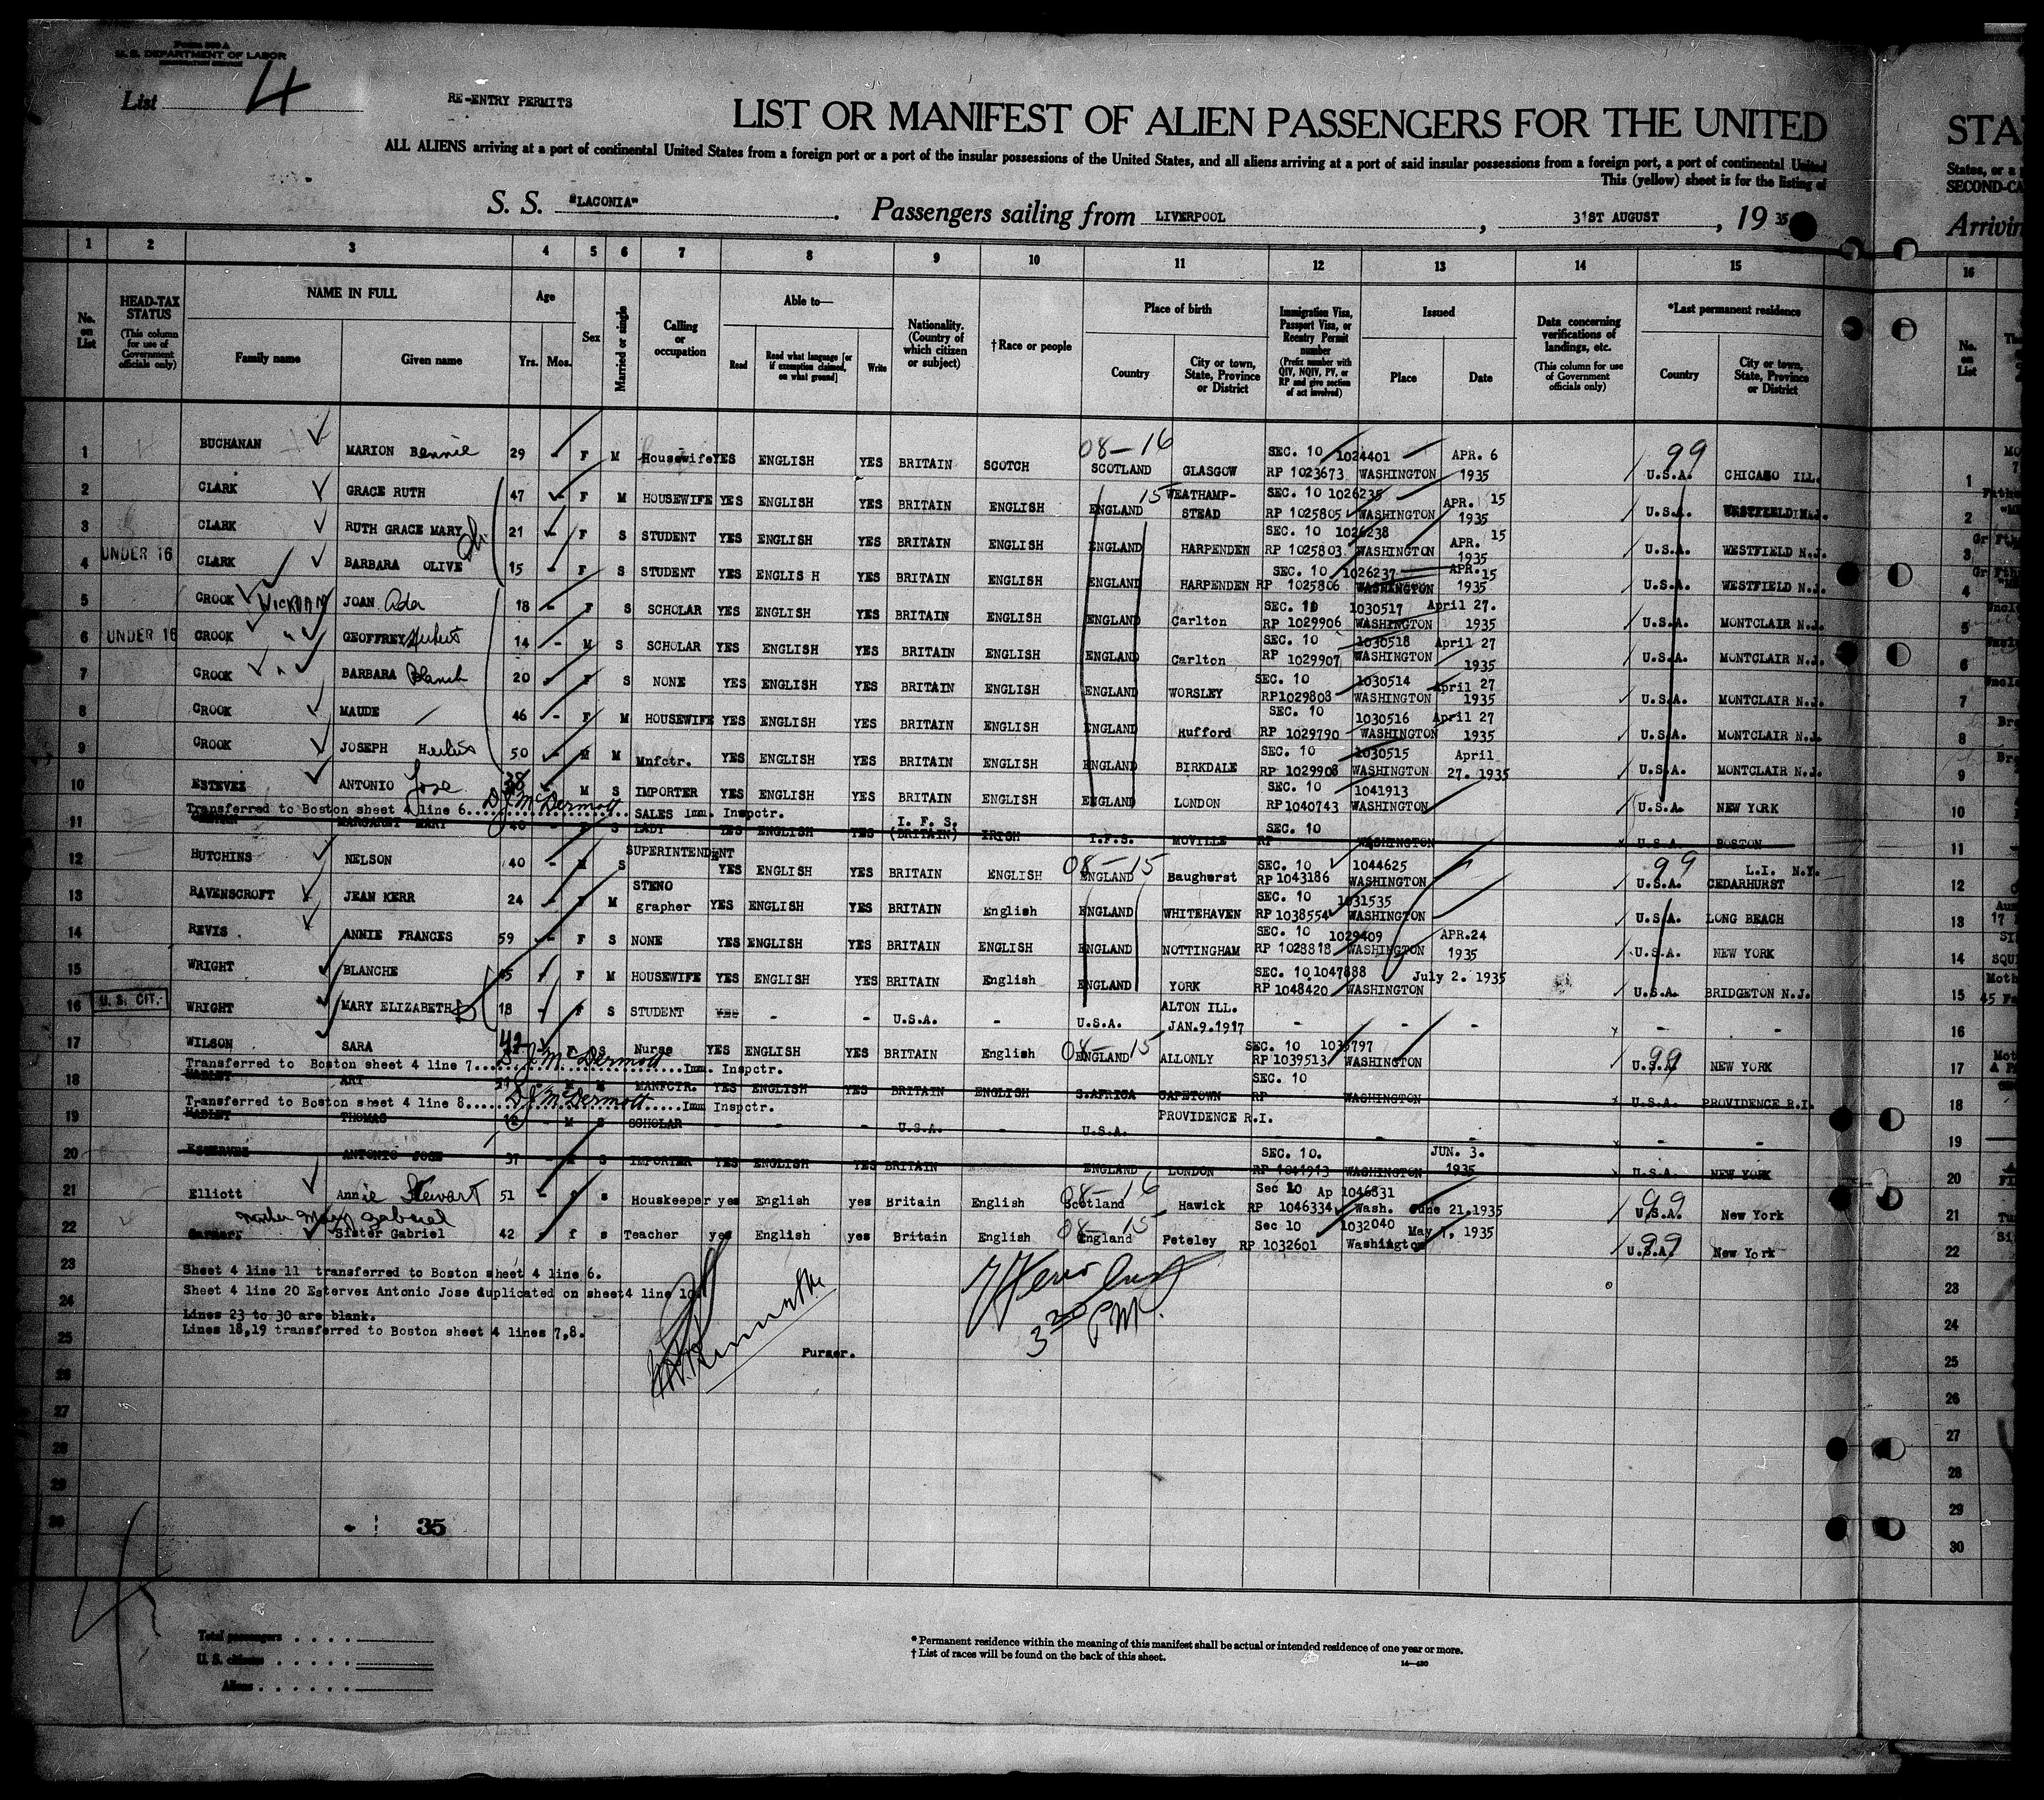 U. S. DEPARTMENT OF LABOR
List 4
RE-ENTRY PERMITS
LIST OR MANIFEST OF ALIEN PASSENGERS FOR THE UNITED
STA
ALL ALIENS arriving at a port of continental United States from a foreign port or a port of the insular possessions of the United States, and all aliens arriving at a port of said insular possessions from a foreign port, a port of continental United
States, or a
This (yellow) sheet is for the listing of
SECOND-CA
S. S. "LACONIA" Passengers sailing from LIVERPOOL, 31ST AUGUST, 1935
Arrivin
1 2 3 4 5 6 7 8 9 10 11 12 13 14 15 16
No. on List
HEAD-TAX STATUS (This column for use of Government officials only)
NAME IN FULL
Family name
Given name
Age
Yrs. Mos.
Sex
Married or single
Calling or occupation
Able to—
Read
Read what language [or if exemption claimed, on what ground]
Write
Nationality. (Country of which citizen or subject)
†Race or people
Place of birth
Country
City or town, State, Province or District
Immigration Visa, Passport Visa, or Reentry Permit number (Prefix number with QIV, NQIV, PV, or RP and give section of act involved)
Issued
Place
Date
Data concerning verifications of landings, etc. (This column for use of Government officials only)
*Last permanent residence
Country
City or town, State, Province or District
No. on List
1 BUCHANAN MARION Bennie 29 - F M Housewife YES ENGLISH YES BRITAIN SCOTCH 08-16 SCOTLAND GLASGOW SEC. 10 1024401 RP 1023673 WASHINGTON APR. 6 1935 99 U.S.A. CHICAGO ILL. 1
2 CLARK GRACE RUTH 47 - F M HOUSEWIFE YES ENGLISH YES BRITAIN ENGLISH 15 ENGLAND WEATHAMP-STEAD SEC. 10 1026235 RP 1025805 WASHINGTON APR. 15 1935 U.S.A. WESTFIELD N.J. 2
3 CLARK RUTH GRACE MARY 21 - F S STUDENT YES ENGLISH YES BRITAIN ENGLISH ENGLAND HARPENDEN SEC. 10 1026238 RP 1025803 WASHINGTON APR. 15 1935 U.S.A. WESTFIELD N.J. 3
4 UNDER 16 CLARK BARBARA OLIVE 15 - F S STUDENT YES ENGLIS H YES BRITAIN ENGLISH ENGLAND HARPENDEN SEC. 10 1026237 RP 1025806 WASHINGTON APR. 15 1935 U.S.A. WESTFIELD N.J. 4
5 CROOK WICKHAM JOAN Ada 18 - F S SCHOLAR YES ENGLISH YES BRITAIN ENGLISH ENGLAND Carlton SEC. 10 1030517 RP 1029906 WASHINGTON April 27. 1935 U.S.A. MONTCLAIR N.J. 5
6 UNDER 16 CROOK " GEOFFREY 14 - M S SCHOLAR YES ENGLISH YES BRITAIN ENGLISH ENGLAND Carlton SEC. 10 1030518 RP 1029907 WASHINGTON April 27 1935 U.S.A. MONTCLAIR N.J. 6
7 CROOK " BARBARA Blanch 20 - F S NONE YES ENGLISH YES BRITAIN ENGLISH ENGLAND WORSLEY SEC. 10 1030514 RP1029808 WASHINGTON April 27 1935 U.S.A. MONTCLAIR N.J. 7
8 CROOK MAUDE 46 - F M HOUSEWIFE YES ENGLISH YES BRITAIN ENGLISH ENGLAND Rufford SEC. 10 1030516 RP 1029790 WASHINGTON April 27 1935 U.S.A. MONTCLAIR N.J. 8
9 CROOK JOSEPH 50 - M M Mnfctr. YES ENGLISH YES BRITAIN ENGLISH ENGLAND BIRKDALE SEC. 10 1030515 RP 1029908 WASHINGTON April 27. 1935 U.S.A. MONTCLAIR N.J. 9
10 ESTEVEZ ANTONIO Jose 38 M S IMPORTER YES ENGLISH YES BRITAIN ENGLISH ENGLAND LONDON SEC. 10 1041913 RP1040743 WASHINGTON U.S.A. NEW YORK 10
Transferred to Boston sheet 4 line 6......D.J. McDermott......Imm. Inspctr.
11 MARGARET MARY 40 - F S SALES LADY YES ENGLISH YES I. F. S. (BRITAIN) IRISH I.F.S. MOVILLE SEC. 10 RP WASHINGTON U.S.A. BOSTON 11
12 HUTCHINS NELSON 40 - M S SUPERINTENDENT YES ENGLISH YES BRITAIN ENGLISH 08-15 ENGLAND Baughurst SEC. 10 1044625 RP 1043186 WASHINGTON 99 U.S.A. L.I. N.Y. CEDARHURST 12
13 RAVENSCROFT JEAN KERR 24 - F M STENO grapher YES ENGLISH YES BRITAIN English ENGLAND WHITEHAVEN SEC. 10 1031535 RP 1038554 WASHINGTON U.S.A. LONG BEACH 13
14 REVIS ANNIE FRANCES 59 - F S NONE YES ENGLISH YES BRITAIN ENGLISH ENGLAND NOTTINGHAM SEC. 10 1029409 RP 1028818 WASHINGTON APR.24 1935 U.S.A. NEW YORK 14
15 WRIGHT BLANCHE 45 F M HOUSEWIFE YES ENGLISH YES BRITAIN English ENGLAND YORK SEC. 10 1047888 RP 1048420 WASHINGTON July 2. 1935 U.S.A. BRIDGETON N.J. 15
16 U. S. CIT. WRIGHT MARY ELIZABETH 18 F S STUDENT YES - - U.S.A. - U.S.A. ALTON ILL. JAN.9.1917 - - - - - 16
17 WILSON SARA 42 F S Nurse YES ENGLISH YES BRITAIN English 08-15 ENGLAND ALLONLY SEC. 10 1038797 RP 1039513 WASHINGTON 99 U.S.A. NEW YORK 17
Transferred to Boston sheet 4 line 7......D.J. McDermott......Imm. Inspctr.
18 HADLEY ART M M MANFCTR. YES ENGLISH YES BRITAIN ENGLISH S.AFRICA CAPETOWN SEC. 10 RP WASHINGTON U.S.A. PROVIDENCE R.I. 18
Transferred to Boston sheet 4 line 8......D.J. McDermott......Imm Inspctr.
19 HADLEY THOMAS 12 - M S SCHOLAR - - - U.S.A. - U.S.A. PROVIDENCE R.I. - - - - - 19
20 ESTERVEZ ANTONIO JOSE 37 - M S IMPORTER YES ENGLISH YES BRITAIN ENGLAND LONDON SEC. 10. RP 1041913 WASHINGTON JUN. 3. 1935 U.S.A. NEW YORK 20
21 Elliott Annie Stewart 51 - f s Houskeeper yes English yes Britain English 08-16 Scotland Hawick Sec 10 Ap 1046831 RP 1046334 Wash. June 21.1935 99 U.S.A. New York 21
Mother Mary Gabriel
22 Sister Gabriel 42 f s Teacher yes English yes Britain English 08-15 England Peteley Sec 10 1032040 RP 1032601 Washington May 7, 1935 99 U.S.A. New York 22
23 Sheet 4 line 11 transferred to Boston sheet 4 line 6. 23
24 Sheet 4 line 20 Estervez Antonio Jose duplicated on sheet4 line 10 24
Lines 23 to 30 are blank.
25 Lines 18,19 transferred to Boston sheet 4 lines 7,8. 25
Purser.
3 20 PM.
26 26
27 27
28 28
29 29
30 30
35
Total passengers
U. S. citizens
Aliens
* Permanent residence within the meaning of this manifest shall be actual or intended residence of one year or more.
† List of races will be found on the back of this sheet.